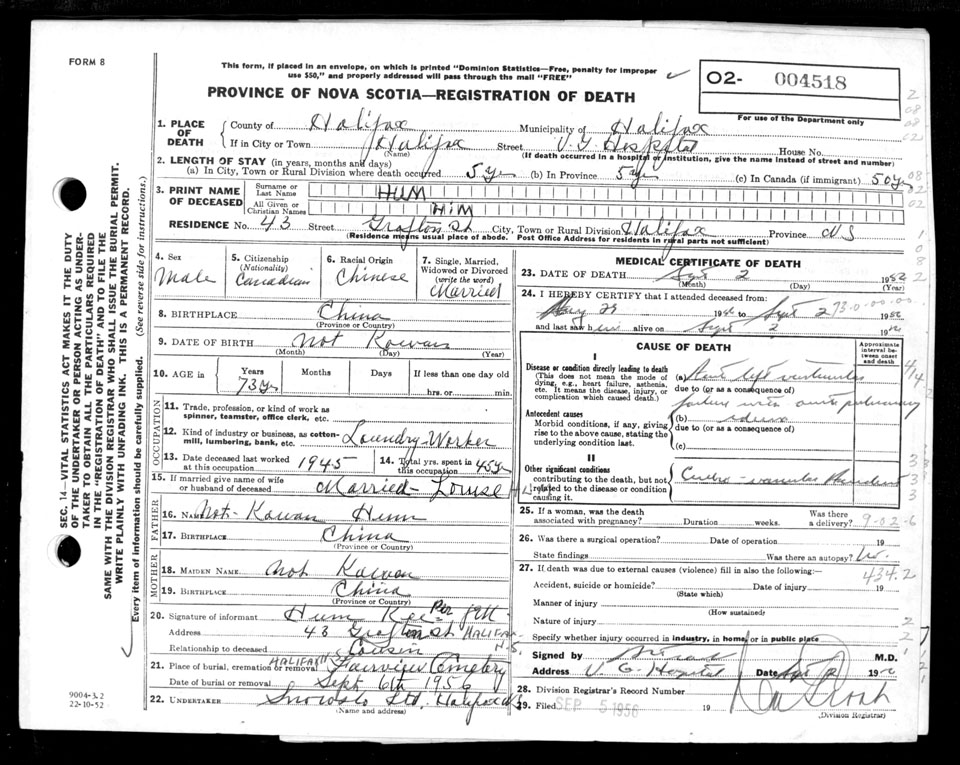 FORM 8
This form, if placed in an envelope, on which is printed "Dominion Statistics—Free, penalty for improper
use $50," and properly addressed will pass through the mail "FREE"
O2- 004518
For use of the Department only
PROVINCE OF NOVA SCOTIA—REGISTRATION OF DEATH
1. PLACE OF DEATH
County of Halifax Municipality of Halifax
If in City or Town Halifax Street V.G. Hospital House No.
(Name) (If death occurred in a hospital or institution, give the name instead of street and number)
2. LENGTH OF STAY (in years, months and days)
(a) In City, Town or Rural Division where death occurred 5 yr (b) In Province 5 yr (c) In Canada (if immigrant) 50 yr
3. PRINT NAME OF DECEASED
Surname or Last Name HUM
All Given or Christian Names HIM
RESIDENCE No. 43 Street Grafton St City, Town or Rural Division Halifax Province NS
(Residence means usual place of abode. Post Office Address for residents in rural parts not sufficient)
4. Sex Male
5. Citizenship (Nationality) Canadian
6. Racial Origin Chinese
7. Single, Married, Widowed or Divorced (write the word) Married
8. BIRTHPLACE China
(Province or Country)
9. DATE OF BIRTH Not Kowan
(Month) (Day) (Year)
10. AGE in Years 73 yr Months Days If less than one day old
hrs. or min.
OCCUPATION
11. Trade, profession, or kind of work as
spinner, teamster, office clerk, etc.
12. Kind of industry or business, as cotton-
mill, lumbering, bank, etc. Loundry Worker
13. Date deceased last worked at this occupation 1945
14. Total yrs. spent in this occupation 45 yr
15. If married give name of wife
or husband of deceased Married - Louise
FATHER
16. NAME Not - Kowan Hum
17. BIRTHPLACE China
(Province or Country)
MOTHER
18. MAIDEN NAME Not Kowan
19. BIRTHPLACE China
(Province or Country)
20. Signature of informant Hum Kee Per
Address 43 Grafton St HALIFAX N.S.
Relationship to deceased Cousin
21. Place of burial, cremation or removal HALIFAX Fairview Cemetery
Date of burial or removal Sept 6th 1956
22. UNDERTAKER Snow & Co Ltd. Halifax
(Name and address)
MEDICAL CERTIFICATE OF DEATH
23. DATE OF DEATH Sept 2 19
(Month) (Day) (Year)
24. I HEREBY CERTIFY that I attended deceased from:
19 to Sept 2 19
and last saw him alive on Sept 2 19
CAUSE OF DEATH
Approximate interval between onset and death
I
Disease or condition directly leading to death
(This does not mean the mode of
dying, e.g., heart failure, asthenia,
etc. It means the disease, injury, or
complication which caused death.)
(a) left ventricular
due to (or as a consequence of)
failure with pulmonary
Antecedent causes
Morbid conditions, if any, giving
rise to the above cause, stating the
underlying condition last.
(b)
due to (or as a consequence of)
(c)
II
Other significant conditions
contributing to the death, but not
related to the disease or condition
causing it.
25. If a woman, was the death
associated with pregnancy? Duration weeks. Was there a delivery?
26. Was there a surgical operation? Date of operation 19
State findings Was there an autopsy?
27. If death was due to external causes (violence) fill in also the following:—
434.2
Accident, suicide or homicide? Date of injury 19
(State which)
Manner of injury
(How sustained)
Nature of injury
Specify whether injury occurred in industry, in home, or in public place
Signed by M.D.
Address V. G. Hospital Date Sept 19
28. Division Registrar's Record Number
29. Filed SEP 5 1956 19
(Division Registrar)
SEC. 14—VITAL STATISTICS ACT MAKES IT THE DUTY
OF THE UNDERTAKER OR PERSON ACTING AS UNDER-
TAKER TO OBTAIN ALL THE PARTICULARS REQUIRED
IN THE "REGISTRATION OF DEATH" AND TO FILE THE
SAME WITH THE DIVISION REGISTRAR WHO SHALL ISSUE THE BURIAL PERMIT.
WRITE PLAINLY WITH UNFADING INK. THIS IS A PERMANENT RECORD.
Every item of information should be carefully supplied. (See reverse side for instructions.)
9004-3.2
22-10-52